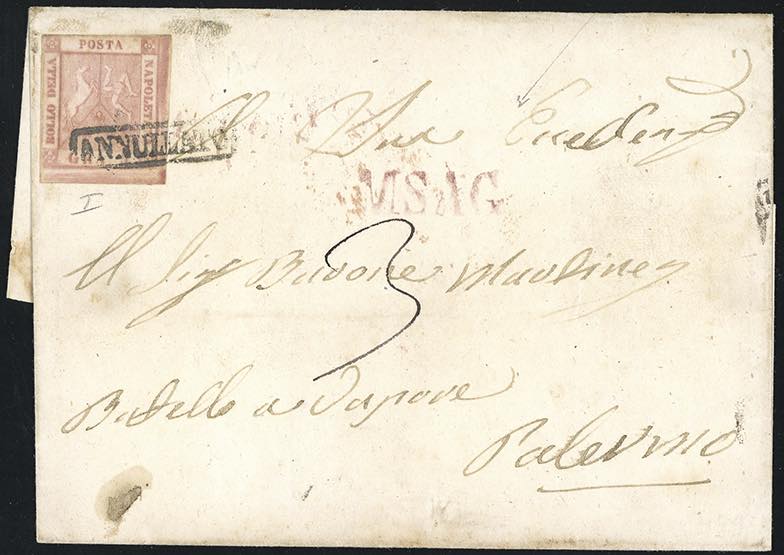 POSTA
BOLLO DELLA
NAPOLET
G
ANNULLATO
I
A Sua Eccellenza
MS AG
3
Il Sigr Barone Martinez
Batello a Vapore
Palermo